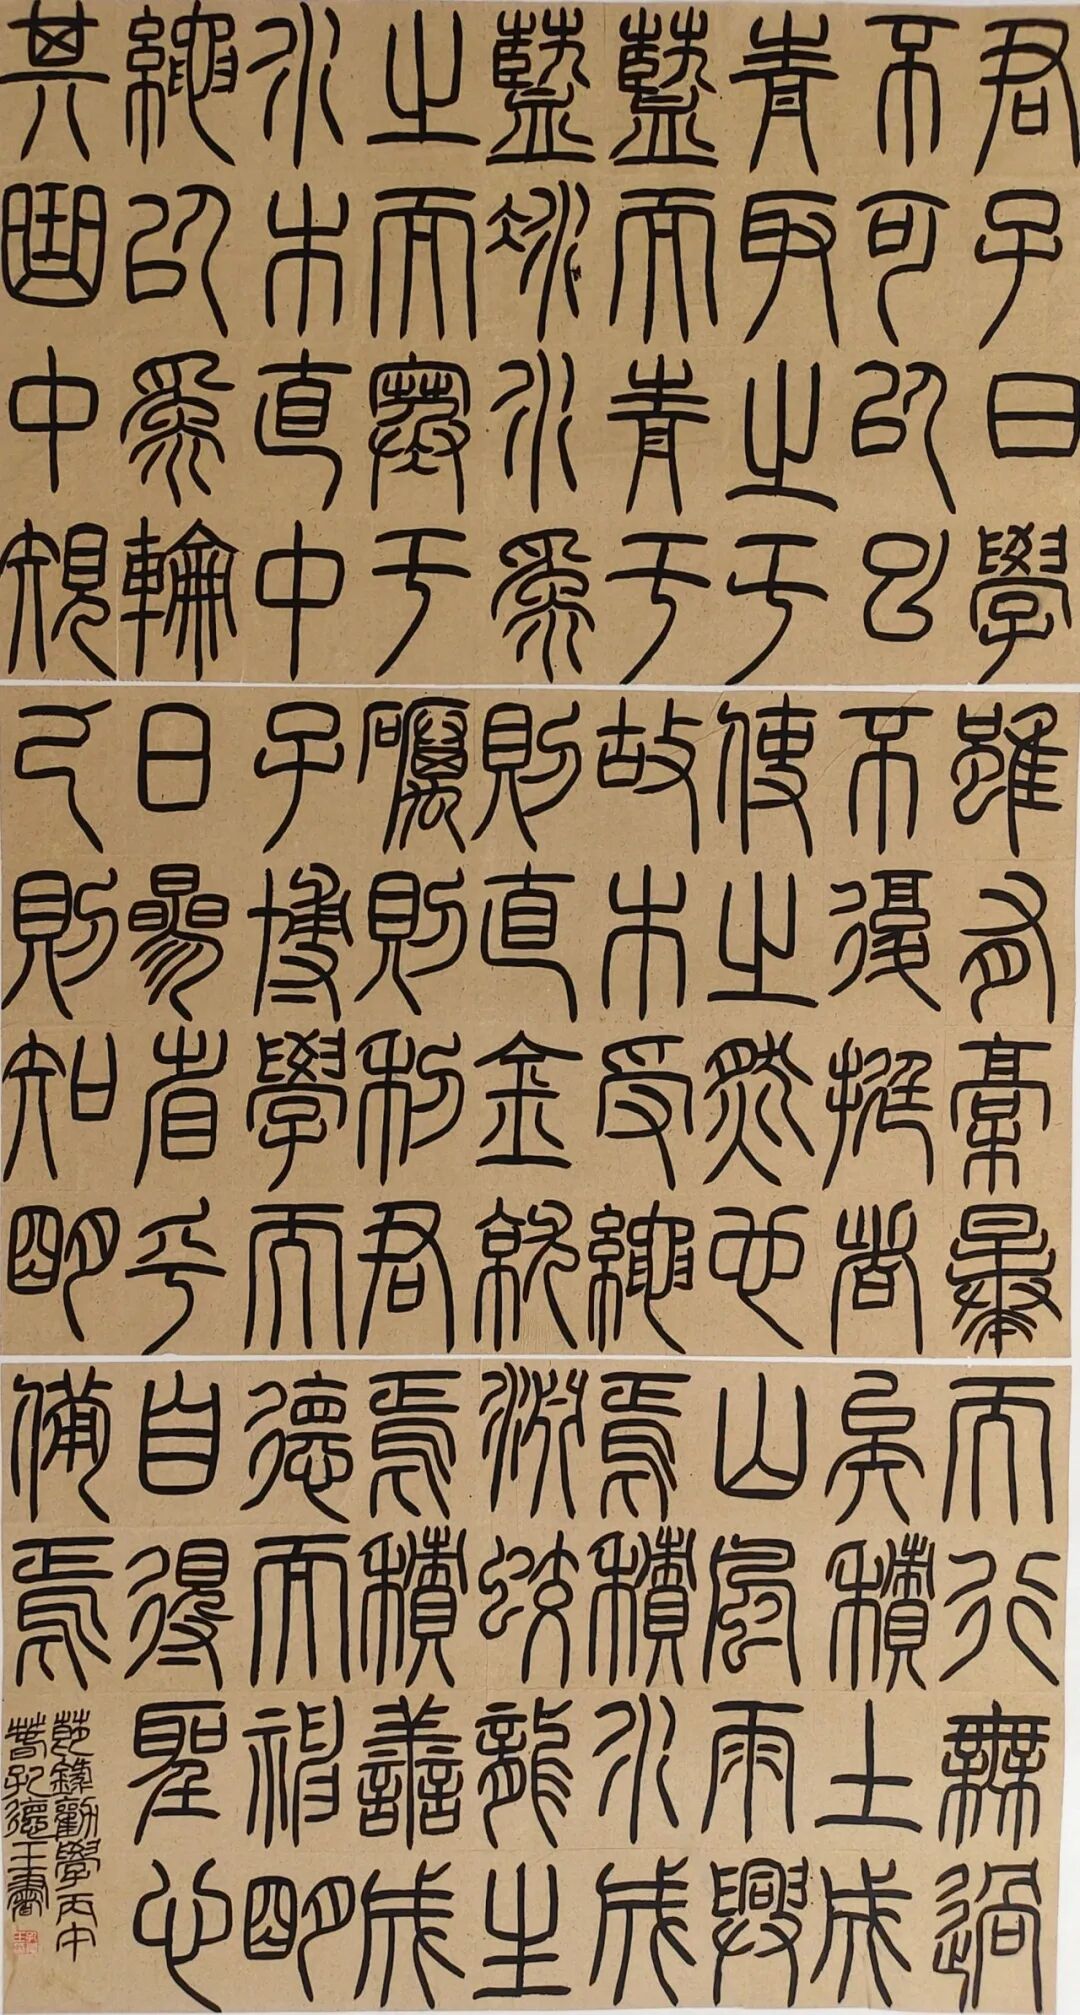 君子曰學
不可以已
青取之于
藍而青于
藍冰水爲
之而寒于
水木直中
繩以爲輪
其曲中規
雖有槀暴
不復挺者
使之然也
故木受繩
則直金就
礪則利君
子博學而
日參省乎
己則知明
而行無過
矣積土成
山風雨興
焉積水成
淵蛟龍生
焉積善成
德而神明
自得聖心
備焉
節錄勸學丙午
春孔德玉書